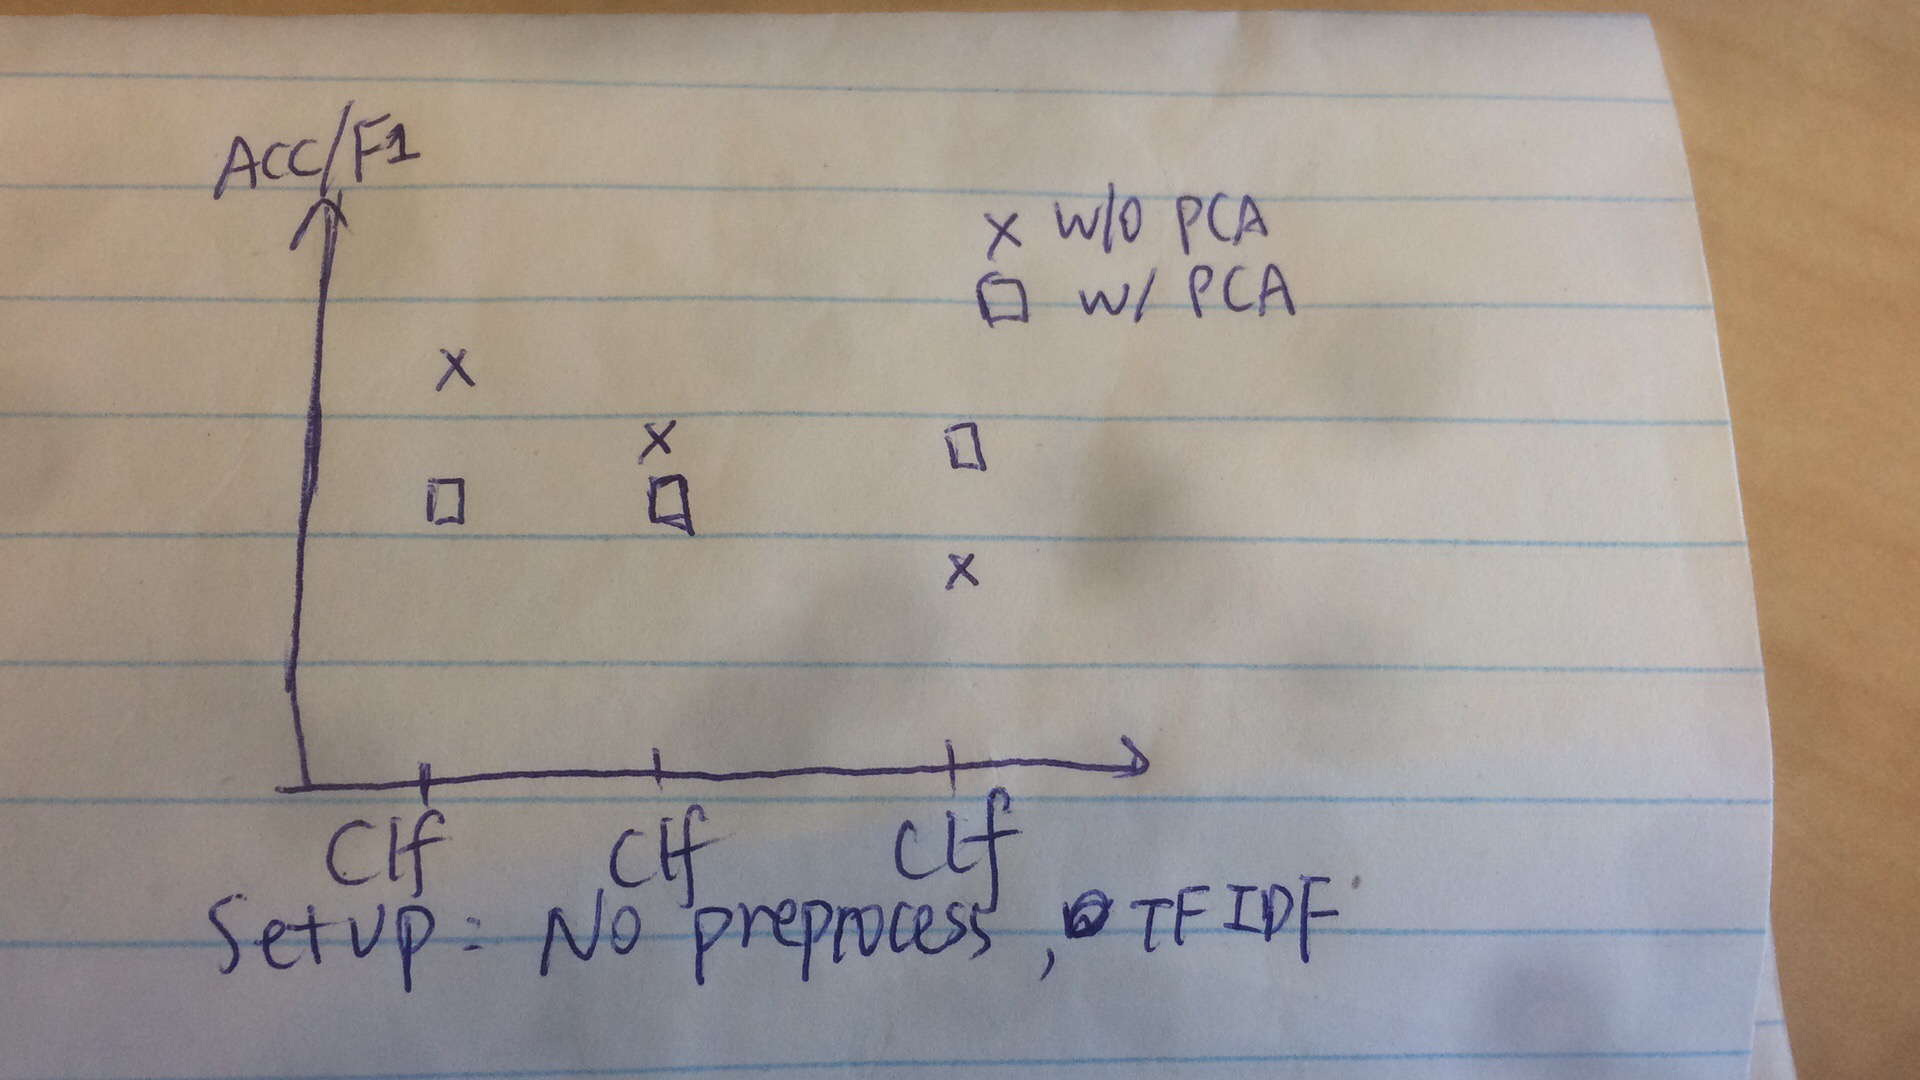 ACC/F1
x w/o PCA
□ w/ PCA
Clf Clf Clf
Setup: No preprocess, TFIDF